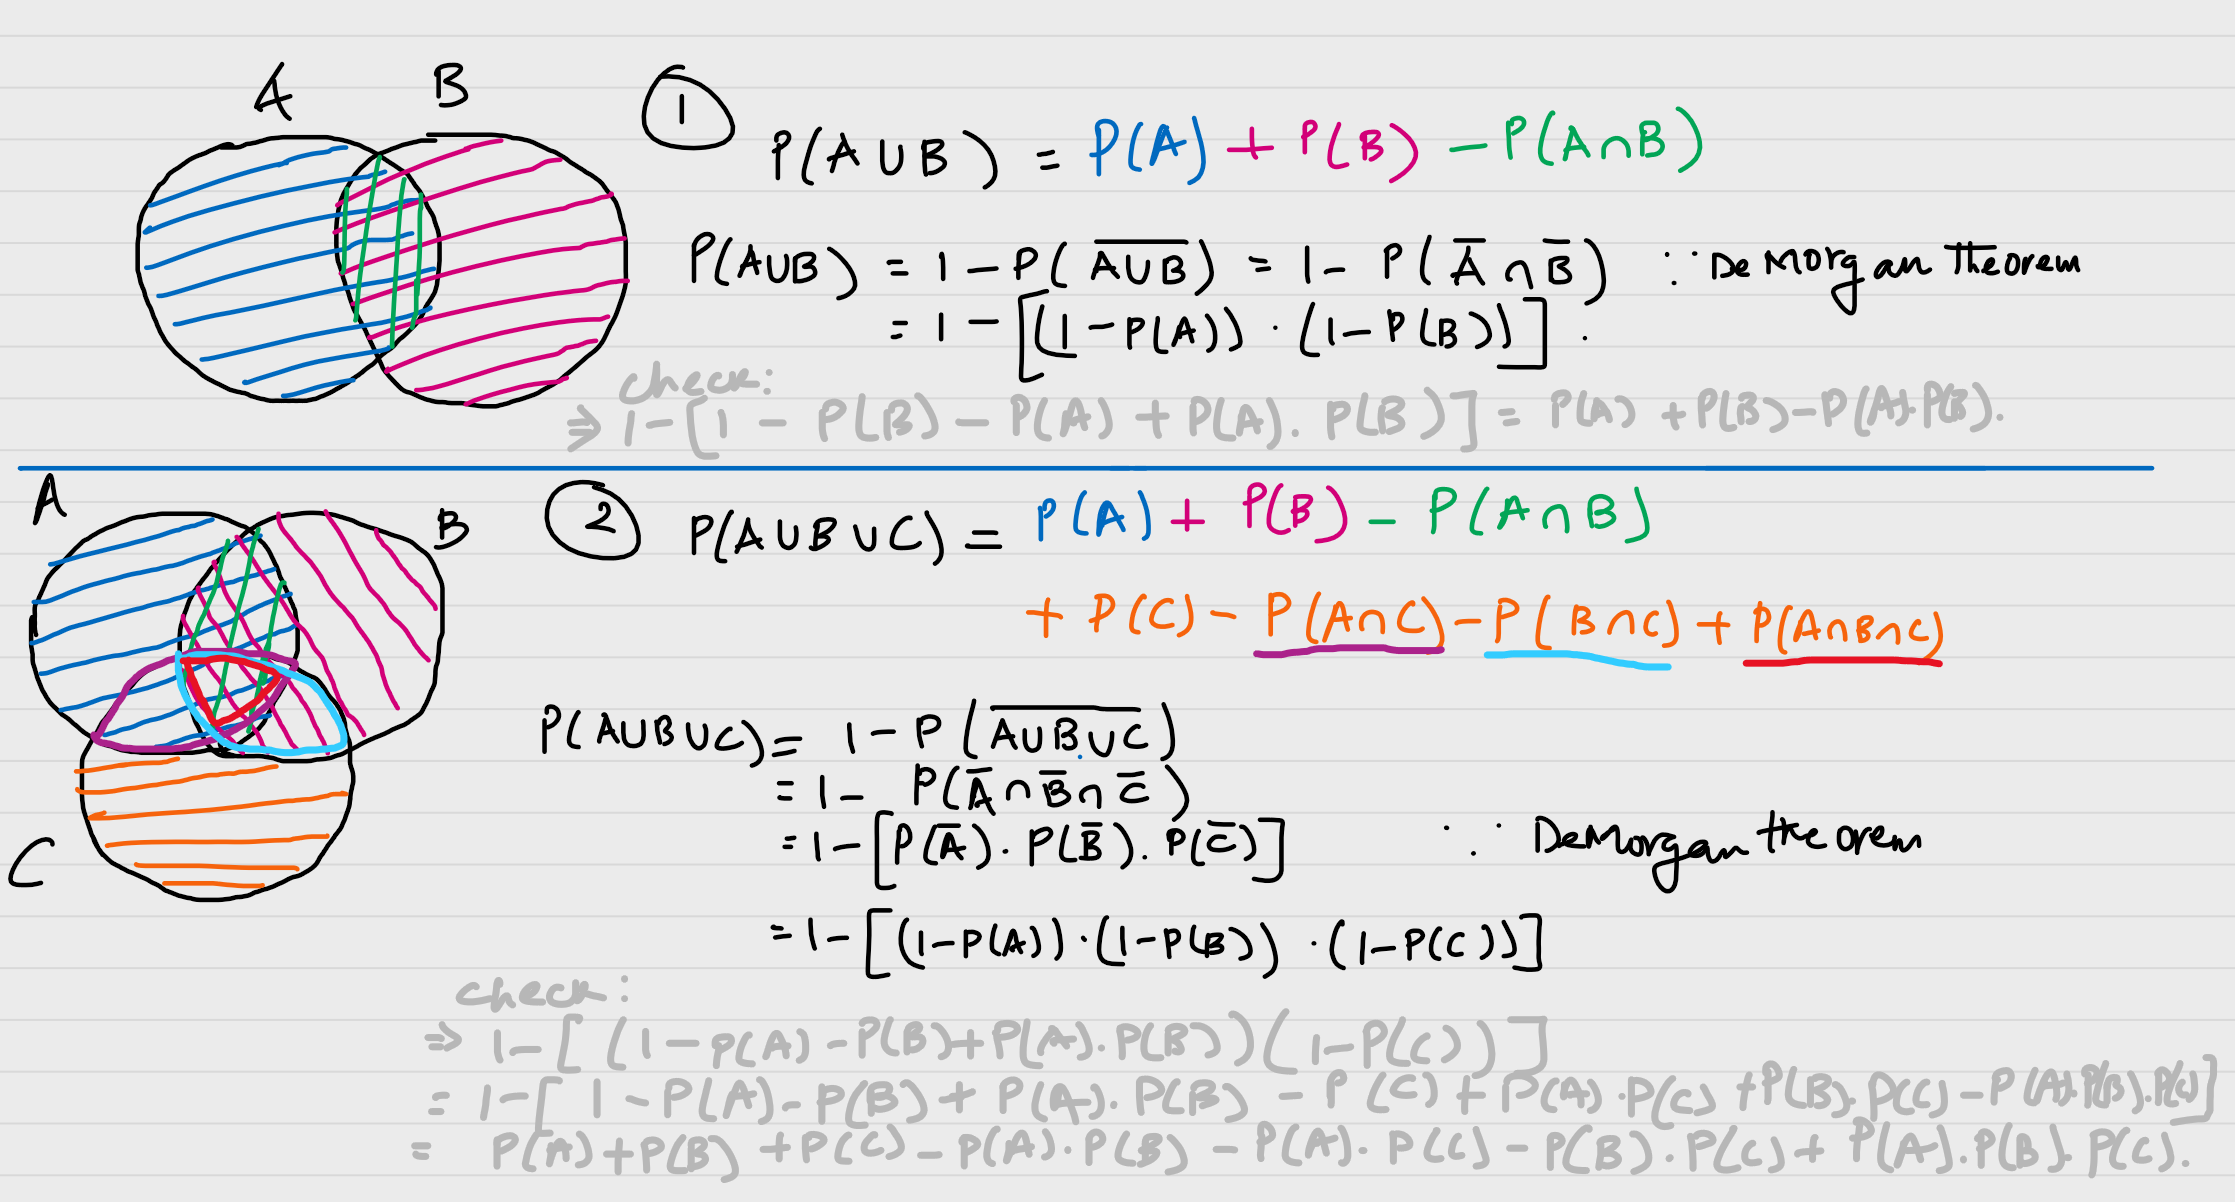 A B
①
P(A∪B) = P(A) + P(B) - P(A∩B)
P(A∪B) = 1 - P(A̅∪̅B̅) = 1 - P(A̅ ∩ B̅) ∵ De Morgan Theorem
= 1 - [(1-P(A)) · (1-P(B))].
check:
⇒ 1-[1 - P(B) - P(A) + P(A). P(B)] = P(A) + P(B) - P(A).P(B).
A B C
②
P(A∪B∪C) = P(A) + P(B) - P(A∩B)
+ P(C) - P(A∩C) - P(B∩C) + P(A∩B∩C)
P(A∪B∪C) = 1 - P(A̅∪̅B̅∪̅C̅)
= 1 - P(A̅∩B̅∩C̅)
= 1 - [P(A̅). P(B̅). P(C̅)] ∵ DeMorgan theorem
= 1 - [(1-P(A)) · (1-P(B)) · (1-P(C))]
check:
⇒ 1-[(1-P(A)-P(B)+P(A).P(B))(1-P(C))]
= 1-[1-P(A)-P(B)+P(A).P(B) - P(C) + P(A).P(C) + P(B).P(C) - P(A).P(B).P(C)]
= P(A)+P(B)+P(C)-P(A).P(B) - P(A).P(C) - P(B).P(C) + P(A).P(B).P(C).